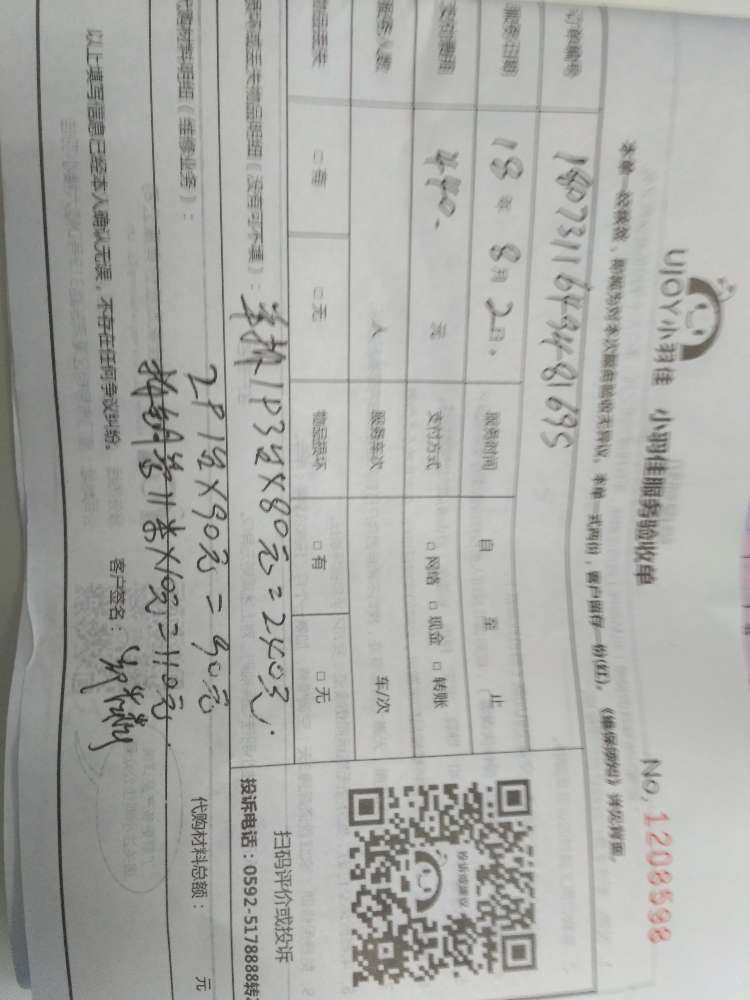 UJOY小羽佳 小羽佳服务验收单
No. 1208598
本单一经换救，即视为对本次服务验收无异议。本单一式两份，客户留存一份(红)。《维保须知》详见背面。
订单编号 180731164948169S
服务日期 18年 8月 2日。 服务时间 自 至 止
支付费用 440. 元 支付方式 □网络 □现金 □转账
服务人数 人 服务车次 车/次
物品丢失 □有 □无 物品损坏 □有 □无
损坏或丢失物品明细（没有可不填）： 单拆 1P3台×80元=240元.
代购材料明细（维修业务）： 2P1台×90元=90元
11条×10元=110元.
代购材料总额： 元
以上填写信息已经本人确认无误，不存在任何争议纠纷。 客户签名：
投诉或建议
扫码评价或投诉
投诉电话：0592-5178888转